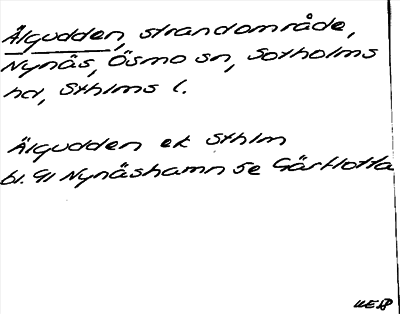 Älgudden, strandområde,
Nynäs, Ösmo sn, Sotholms
hd, Sthlms l.
Älgudden ek Sthlm
bl. 91 Nynäshamn 5e Gärtlotta